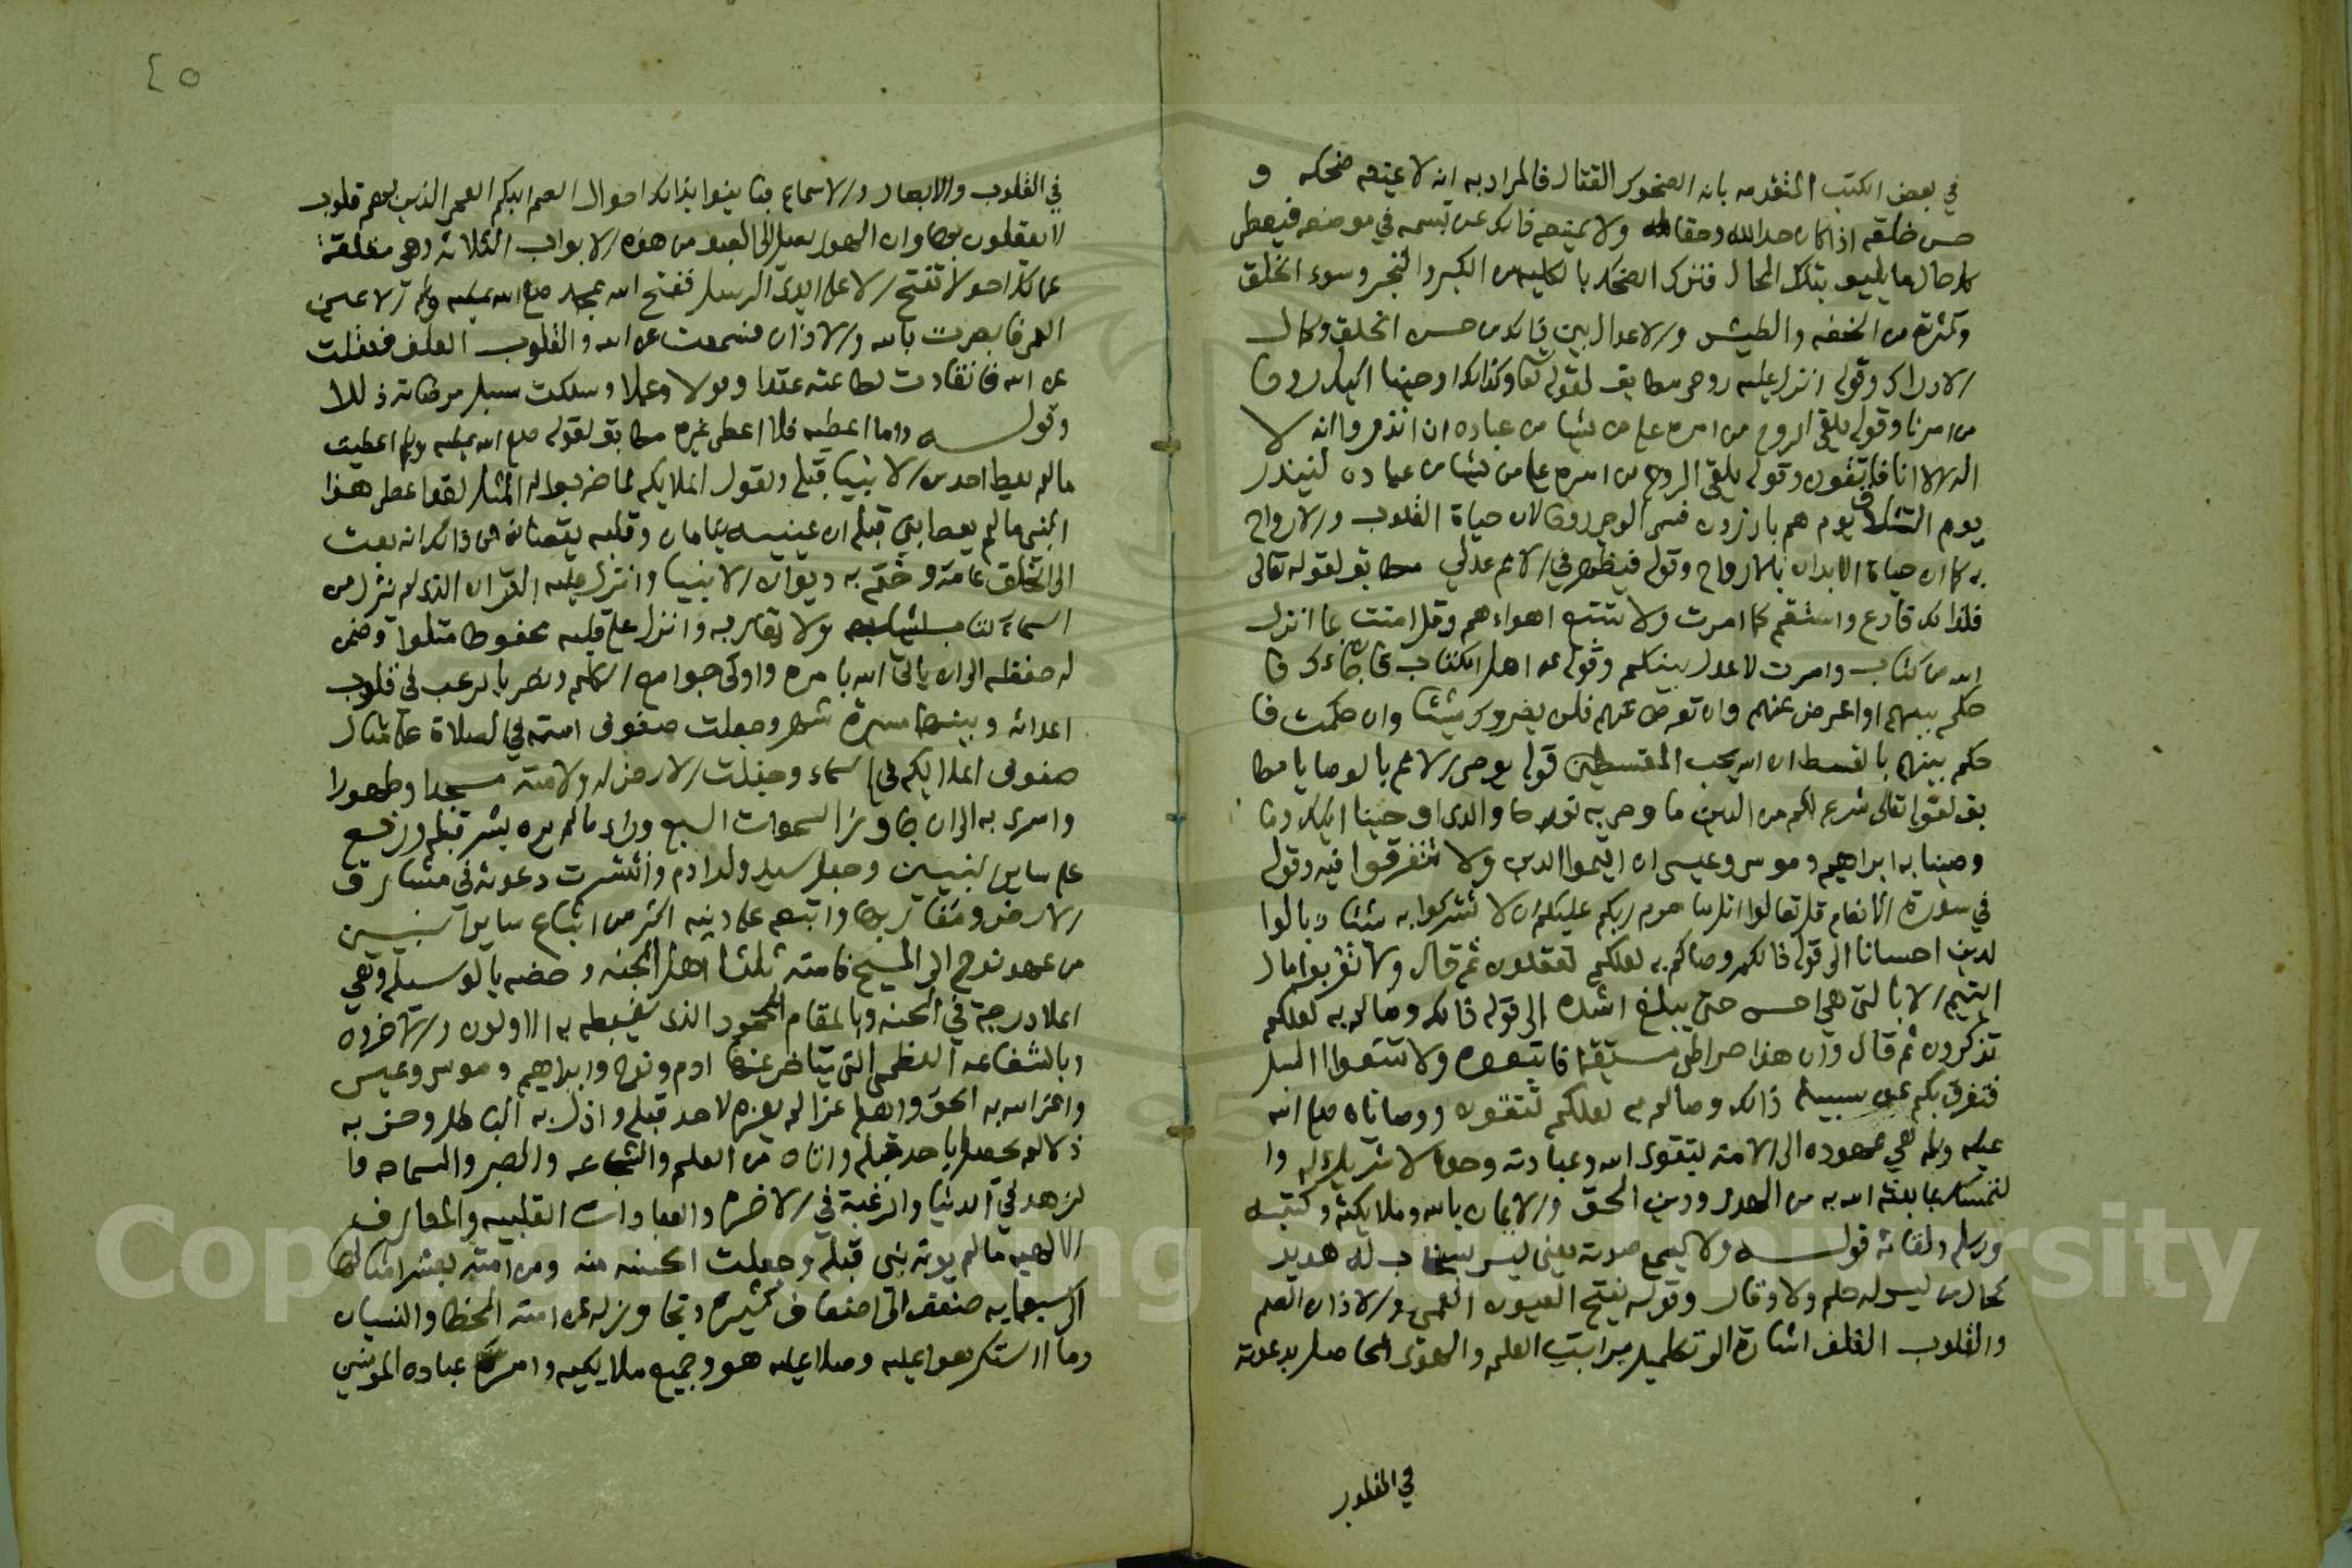 في بعض الكتب المتقدمه بانه الضحوك القتال فالمراد به انه لا يمنعه ضحكه و
حسن خلقه اذا كان حد الله وحقا له ولا يمنعه ذلك عن تبسمه في موضعه فيعطي
كل حال ما يليق بتلك الحال فترك الضحك بالكليه من الكبر والتجبر وسوء الخلق
وكثرته من الخفه والطيش والاعتدال بين ذلك من حسن الخلق وكمال
الادراك وقوله انزل عليه روحي مطابق لقوله تعا وكذلك اوحينا اليك روحا
من امرنا وقوله يلقي الروح من امره على من يشا من عباده ان انذروا انه لا
اله الا انا فاتقون وقوله يلقي الروح من امره على من يشا من عباده لينذر
يوم التلاق يوم هم بارزون فسمى الوحي روحا لان حياة القلوب والارواح
به كما ان حياة الابدان بالارواح وقوله فيظهر في الامم عدلي مطابق لقوله تعالى
فلذلك فادع واستقم كما امرت ولا تتبع اهواءهم وقل امنت بما انزل
الله من كتاب وامرت لاعدل بينكم وقوله عن اهل الكتاب فان جاءوك فا
حكم بينهم او اعرض عنهم وان تعرض عنهم فلن يضروك شيئا وان حكمت فا
حكم بينهم بالقسط ان الله يحب المقسطين قوله يوصي الامم بالوصايا مطا
بق لقوله تعالى شرع لكم من الدين ما وصى به نوحا والذي اوحينا اليك وما
وصينا به ابراهيم وموسى وعيسى ان اقيموا الدين ولا تتفرقوا فيه وقوله
في سورة الانعام قل تعالوا اتل ما حرم ربكم عليكم ان لا تشركوا به شئا وبالوا
لدين احسانا الى قوله ذلكم وصاكم به لعلكم تعقلون ثم قال ولا تقربوا مال
اليتيم الا بالتي هي احسن حتى يبلغ اشده الى قوله ذلكم وصاكم به لعلكم
تذكرون ثم قال وان هذا صراطي مستقيما فاتبعوه ولا تتبعوا السبل
فتفرق بكم عن سبيله ذلكم وصاكم به لعلكم تتقون ووصاياه صلى الله
عليه وسلم هي عهوده الى الامة بتقوى الله وعبادته وحده لا شريك له وا
لتمسك بما بعثه الله به من الهدى ودين الحق والايمان بالله وملايكته وكتبه
ورسله ولقائه قوله ولا يسمع صوته يعني ليس بسخاب له هدير
كحال من ليس له حلم ولا وقار وقوله يفتح العيون العمي والاذان الصم
والقلوب الغلف اشارة الى تكميل مراتب العلم والهدى الحاصل بدعوته
في القلوب
٤٥
في القلوب والابصار والاسماع فباينوا بذلك احوال الصم البكم العمي الذين لهم قلوب
لا يعقلون بها وان الهدى يصل الى العبد من هذه الابواب الثلاثة وهي مغلقة
عن كل احد لا تفتح الا على ايدي الرسل ففتح الله بمحمد صلى الله عليه وسلم الاعين
العمي فابصرت بالله والاذان فسمعت عن الله والقلوب الغلف فعقلت
عن الله فانقادت لطاعته عقدا وقولا وعملا وسلكت سبل مرضاته ذللا
وقوله وما اعطيه فلا اعطي غيره مطابق لقوله صلى الله عليه وسلم اعطيت
ما لم يعط احد من الانبيا قبلي ولقول الملايكه لما ضربوا له المثل لقد اعطي هذا
النبي ما لم يعط نبي قبله ان عينيه تنامان وقلبه يقظان فمن ذلك انه بعث
الى الخلق عامة وختم به ديوان الانبيا وانزل عليه القران الذي لم ينزل من
السماء كتاب يشابهه ولا يقاربه وانزل على قلبه محفوظا متلوا وضمن
له حفظه الى ان ياتي الله بامره واوتي جوامع الكلم ونصر بالرعب في قلوب
اعدائه وبينهما مسيرة شهر وجعلت صفوف امته في الصلاة على مثال
صفوف الملايكه في السماء وجعلت الارض له ولامته مسجدا وطهورا
واسرى به الى ان جاوز السموات السبع وراى ما لم يره بشر قبله ورفع
على ساير النبيين وجعل سيد ولد ادم وانتشرت دعوته في مشارق
الارض ومغاربها واتبعه على دينه اكثر من اتباع ساير النبيين
من عهد نوح الى المسيح فامته ثلثا اهل الجنه وخصه بالوسيله وهي
اعلا درجة في الجنه وبالمقام المحمود الذي يغبطه به الاولون والاخرون
وبالشفاعه العظمى التي يتاخر عنها ادم ونوح وابراهيم وموسى وعيسى
واعز الله به الحق واهله عزا لم يعزه لاحد قبله واذل به الباطل وحزبه
ذلا لم يحصل باحد قبله واتاه من العلم والشجاعه والصبر والسماحه وا
لزهد في الدنيا والرغبة في الاخره والعبادات القلبيه والمعارف
الالهيه ما لم يوته نبي قبله وجعلت الحسنه منه ومن امته بعشر امثالها
الى سبعمايه ضعف الى اضعاف كثيره وتجاوز له عن امته الخطا والنسيان
وما استكرهوا عليه وصلا عليه هو وجميع ملايكته وامر عباده المومنين